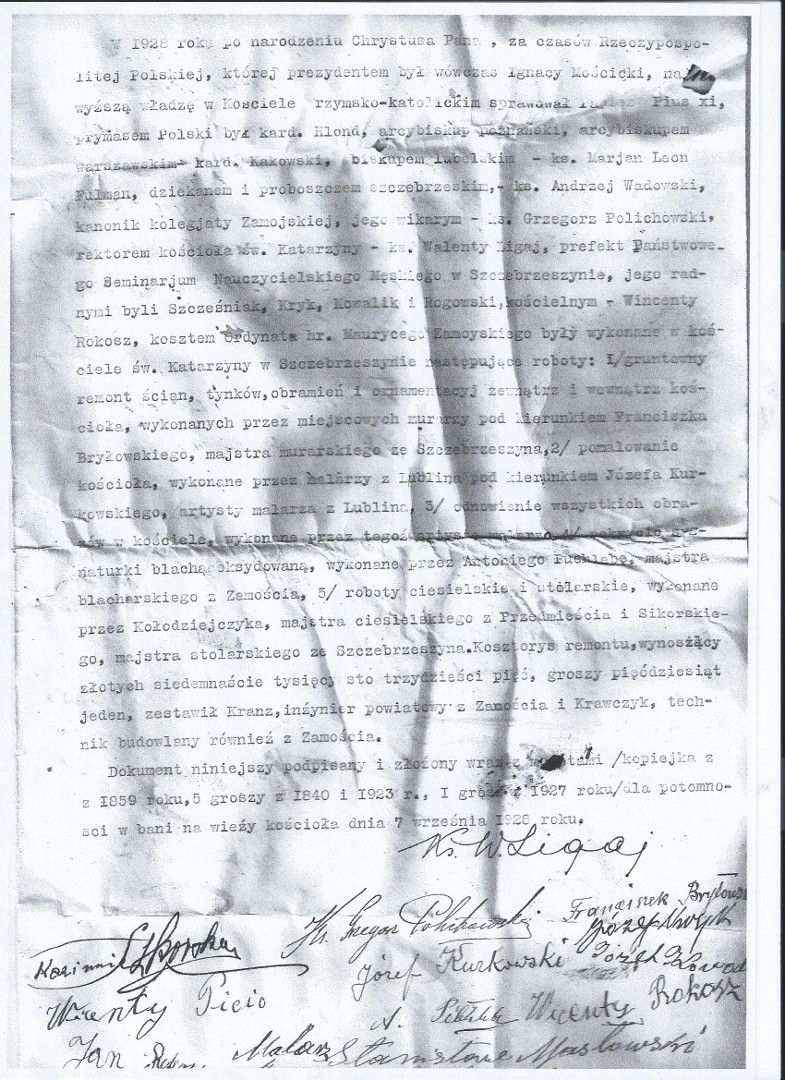 W 1928 roku po narodzeniu Chrystusa Pana , za czasów Rzeczypospo-
litej Polskiej, której prezydentem był wówczas Ignacy Mościcki, naj
wyższą władzę w Kościele rzymsko-katolickim sprawował Papież Pius xi,
prymasem Polski był kard. Hlond, arcybiskup poznański, arcybiskupem
warszawskim- kard. Kakowski, biskupem lubelskim - ks. Marjan Leon
Fulman, dziekanem i proboszczem szczebrzeskim,- ks. Andrzej Wadowski,
kanonik kolegjaty Zamojskiej, jego wikarym - ks. Grzegorz Polichowski,
rektorem kościoła św. Katarzyny - ks. Walenty Ligaj, prefekt Państwowe-
go Seminarjum Nauczycielskiego Męskiego w Szczebrzeszynie, jego rad-
nymi byli Szcześniak, Kryk, Kowalik i Rogowski,kościelnym - Wincenty
Rokosz, kosztem Ordynata hr. Maurycego Zamoyskiego były wykonane w koś-
ciele św. Katarzyny w Szczebrzeszynie następujące roboty: I/gruntowny
remont ścian, tynków,obramień i ornamentacyj zewnątrz i wewnątrz koś-
cioła, wykonanych przez miejscowych murarzy pod kierunkiem Franciszka
Bryłowskiego, majstra murarskiego ze Szczebrzeszyna,2/ pomalowanie
kościoła, wykonane przez malarzy z Lublina pod kierunkiem Józefa Kur-
kowskiego, artysty malarza z Lublina, 3/ odnowienie wszystkich obra-
zów w kościele, wykonane przez tegoż 4/
naturki blachą oksydowaną, wykonane przez Antoniego majstra
blacharskiego z Zamościa, 5/ roboty ciesielskie i stolarskie, wykonane
przez Kołodziejczyka, majstra ciesielskiego z Przedmieścia i Sikorskie-
go, majstra stolarskiego ze Szczebrzeszyna.Kosztorys remontu,wynoszący
złotych siedemnaście tysięcy sto trzydzieści pięć, groszy pięćdziesiąt
jeden, zestawił Kranz,inżynier powiatowy z Zamościa i Krawczyk, tech-
nik budowlany również z Zamościa.
Dokument niniejszy podpisany i złożony wraz z monetami /kopiejka z
z 1859 roku,5 groszy z 1840 i 1923 r., I grosz z 1927 roku/dla potomno-
sci w bani na wieży kościoła dnia 7 września 1928 roku.
Ks. W. Ligaj
Ks. Grzegorz Polichowski Franciszek Bryłows
Józef
Józef Kurkowski Józef Kowal
Wicenty Picio Wicenty Rokosz
Jan Malarz Stanisław Masłowski